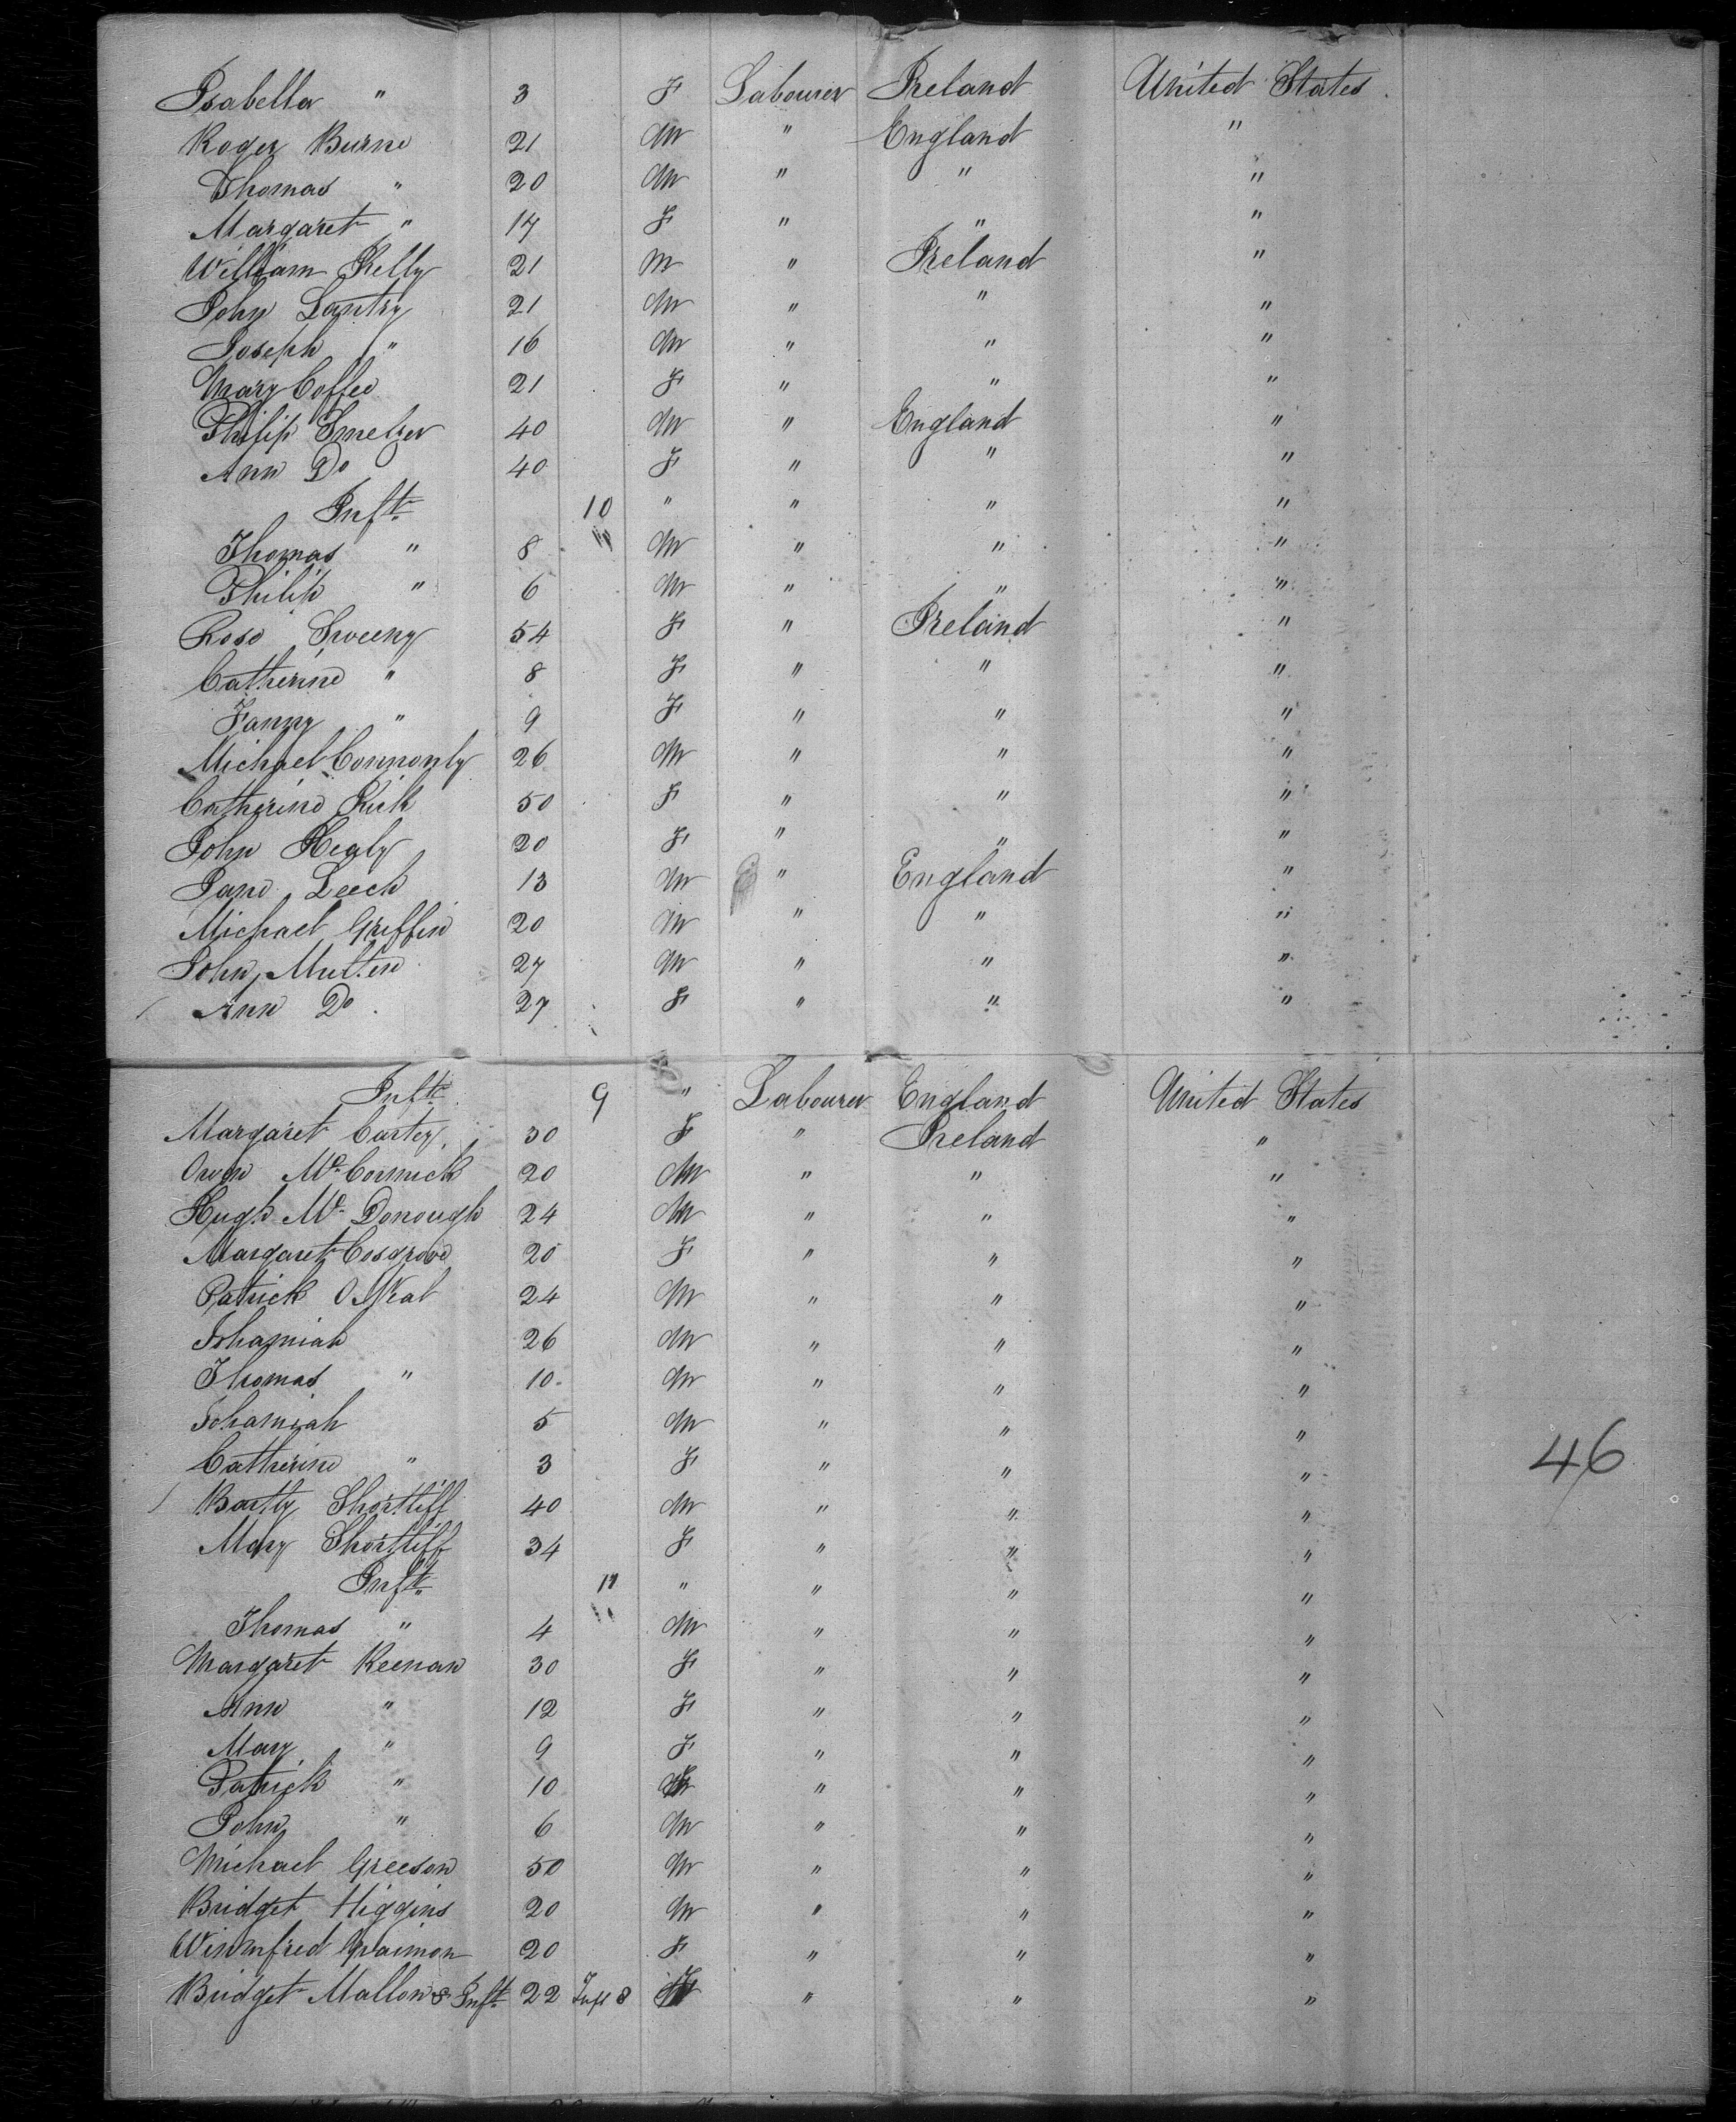 Isabella " 3 F Labourer Ireland United States
Roger Burne 21 M " England "
Thomas " 20 M " " "
Margaret " 17 F " " "
William Kelly 21 M " Ireland "
John Lantry 21 M " " "
Joseph " 16 M " " "
Mary Coffee 21 F " " "
Philip Smelzer 40 M " England "
Ann Do 40 F " " "
Inft. 10 " " " "
Thomas " 8 M " " "
Philip " 6 M " " "
Rose Sweeny 54 F " Ireland "
Catherine " 8 F " " "
Fanny " 9 F " " "
Michael Connonly 26 M " " "
Catherine Kick 50 F " " "
John Healy 20 F " " "
Jane Leech 13 M " England "
Michael Griffin 20 M " " "
John Multen 27 M " " "
Ann Do. 27 F " " "
Inft. 9 " Labourer England United States
Margaret Carter 30 F " Ireland "
Owen McCormick 20 M " " "
Hugh McDonough 24 M " " "
Margaret Cosgrove 20 F " " "
Patrick ONeal 24 M " " "
Johamiah 26 M " " "
Thomas " 10 M " " "
Johamiah 5 M " " "
Catherine " 3 F " " "
46
Bartly Shortliff 40 M " " "
Mary Shortliff 34 F " " "
Inft. 11 " " " "
Thomas " 4 M " " "
Margaret Keenan 30 F " " "
Ann " 12 F " " "
Mary " 9 F " " "
Patrick " 10 M " " "
John " 6 M " " "
Michael Greeson 50 M " " "
Bridget Higgins 20 M " " "
Winnfred Graimon 20 F " " "
Bridget Mallon & Inft. 22 Inft 8 F " " "